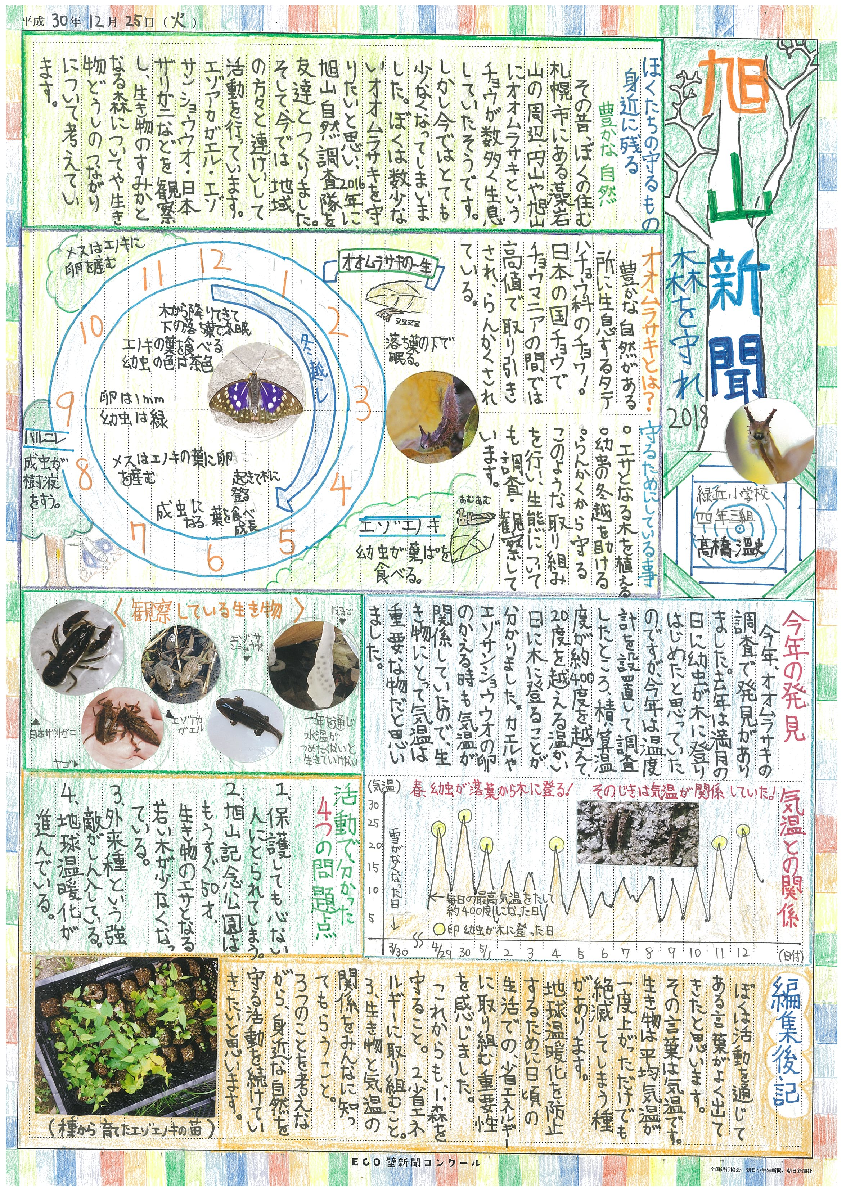 平成30年12月25日(火)
旭山新聞
森を守れ
2018
緑丘小学校
四年三組
髙橋温史
ぼくたちの守るもの
身近に残る
豊かな自然
その昔、ぼくの住む
札幌市にある藻岩
山の周辺、円山や旭山
にオオムラサキという
チョウが数多く生息
していたそうです。
しかし今ではとても
少なくなってしまいま
した。ぼくは数少な
いオオムラサキを守
りたいと思い、2016年に
旭山自然調査隊を
友達とつくりました。
そして今では、地域
の方々と連けいして
活動を行っています。
エゾアカガエル・エゾ
サンショウウオ・日本
ザリガニなどを観察
し、生き物のすみかと
なる森についてや生き
物どうしのつながり
について考えてい
ます。
オオムラサキとは?
豊かな自然がある
所に生息するタテ
ハチョウ科のチョウ!
日本の国チョウで
チョウマニアの間では
高値で取り引き
され、らんかくされ
ている。
守るためにしている事
。エサとなる木を植える
。幼虫の冬越を助ける
。らんかくから守る
このような取り組み
を行い、生態について
も調査・観察して
います。
オオムラサキの一生
落ち葉の下で
眠る。
エゾエノキ
幼虫が葉ぱを
食べる。
メスはエノキに
卵を産む
12
1
2
3
4
5
6
7
8
9
10
11
冬越し
木から降りてきて
下の落ち葉で冬眠
エノキの葉を食べる
幼虫の色は茶色
卵は1mm
幼虫は緑
メスはエノキの葉に卵
を産む
成虫に
なる
起きて木に
登る
葉を食べ
成長
ハルニレ
成虫が
樹液
をすう。
〈観察している生き物〉
日本ザリガニ
ヤゴ
エゾアカ
ガエル
一年を通し
水温が
つめたくないと
生きていけない
今年の発見
今年、オオムラサキの
調査で発見があり
ました。去年は満月の
日に幼虫が木に登り
はじめたと思っていた
のですが、今年は温度
計を設置して調査
したところ、積算温
度が約400度を越えて、
20度を越える温かい
日に木に登ることが
分かりました。カエルや
エゾサンショウウオの卵
のかえる時も気温が
関係していたので生
き物にとって気温は
重要な物だと思い
ました。
気温との関係
春、幼虫が落葉から木に登る! そのじきは気温が関係していた!
(気温)
30
25
20
15
10
5
雪がなくなった日
←毎日の最高気温をたして
約400度になった日!
○印 幼虫が木に登った日
3/30 4/29 30 5/1 2 3 4 5 6 7 8 9 10 11 12 (日付)
活動で分かった
4つの問題点
1、保護しても心ない
人にとられてしまう。
2、旭山記念公園は
もうすぐ50才
生き物のエサとなる
若い木が少なくなっ
ている。
3、外来種という強
敵がしん入している。
4、地球温暖化が
進んでいる。
編集後記
ぼくは活動を通じて
ある言葉がよく出て
きたと思います。
その言葉は気温です。
生き物は平均気温が
一度上がっただけでも
絶滅してしまう種
があります。
地球温暖化を防止
するために日頃の
生活での、省エネルギー
に取り組む重要性
を感じました。
これからも1、森を
守ること。2、省エネ
ルギーに取り組むこと。
3、生き物と気温の
関係をみんなに知っ
てもらうこと。
3つのことを考えな
がら、身近な自然を
守る活動を続けてい
きたいと思います。
(種から育てたエゾエノキの苗)
ECO壁新聞コンクール